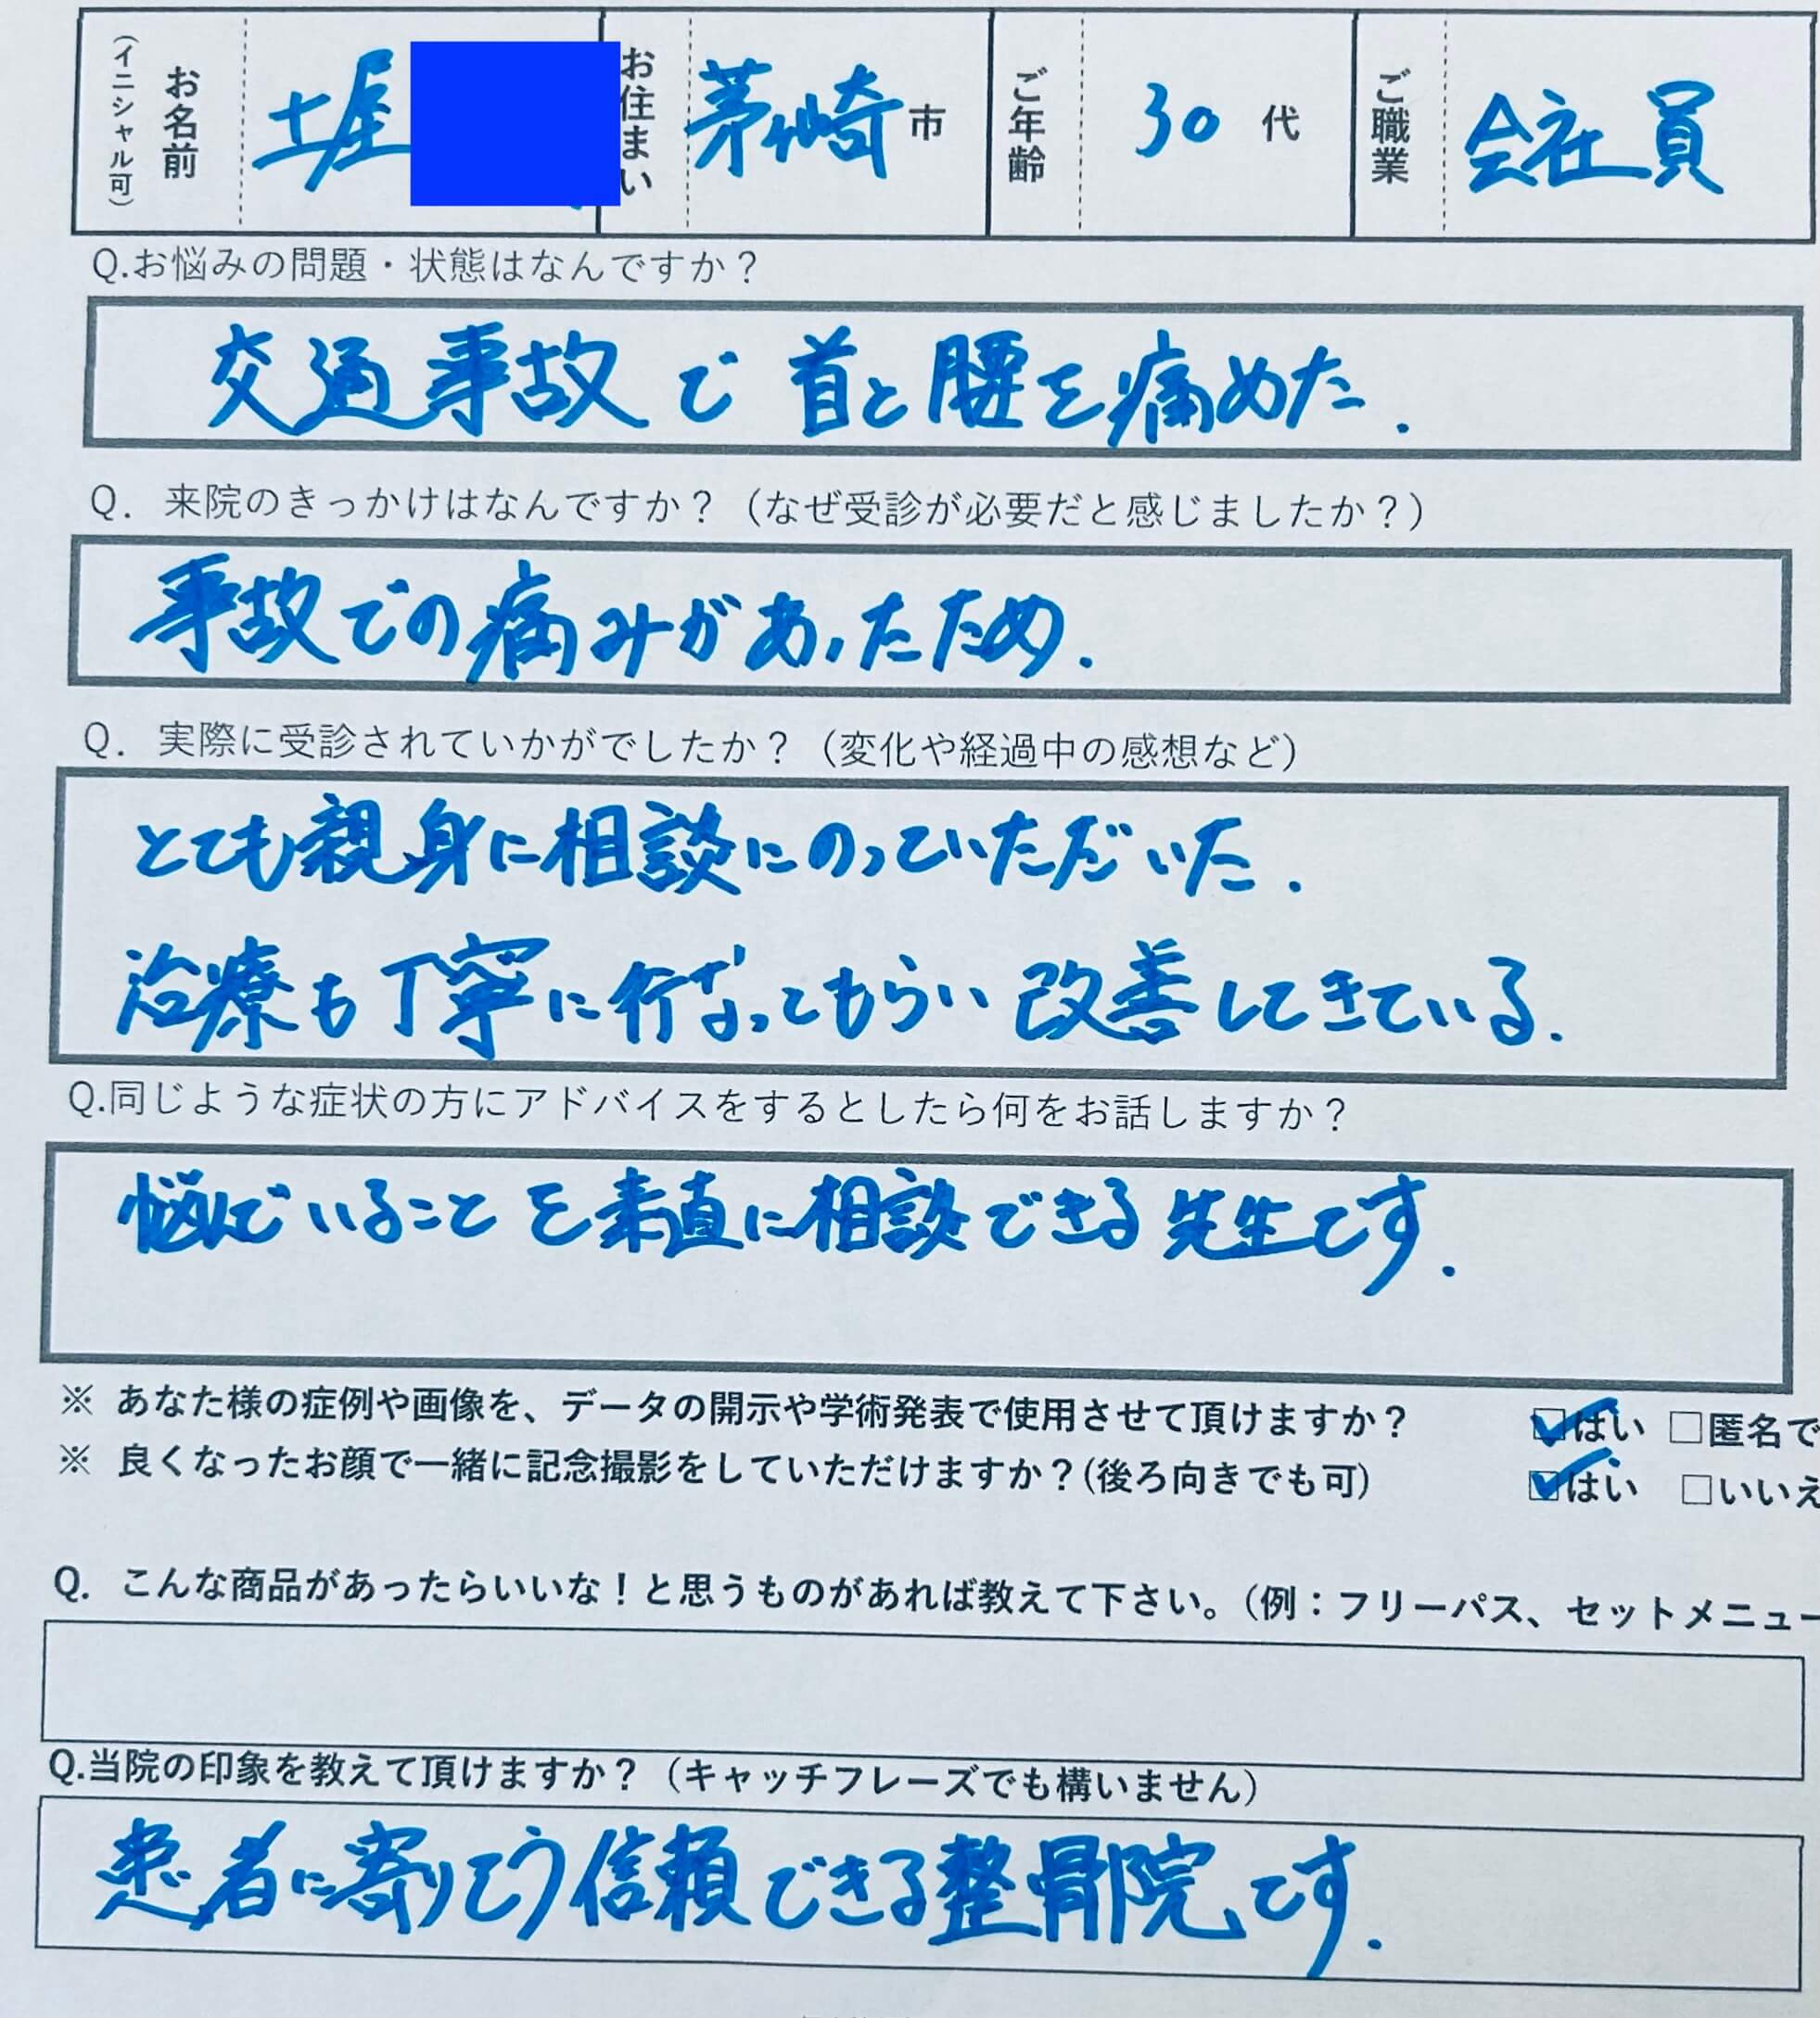 お名前
(イニシャル可)
土屋
お住まい
茅ヶ崎市
ご年齢
30代
ご職業
会社員
Q.お悩みの問題・状態はなんですか？
交通事故で首と腰を痛めた.
Q. 来院のきっかけはなんですか？（なぜ受診が必要だと感じましたか？）
事故での痛みがあったため.
Q. 実際に受診されていかがでしたか？（変化や経過中の感想など）
とても親身に相談にのっていただいた.
治療も丁寧に行なってもらい改善してきている.
Q.同じような症状の方にアドバイスをするとしたら何をお話しますか？
悩んでいることを素直に相談できる先生です.
※ あなた様の症例や画像を、データの開示や学術発表で使用させて頂けますか？ ☑はい □匿名で
※ 良くなったお顔で一緒に記念撮影をしていただけますか？(後ろ向きでも可) ☑はい □いいえ
Q. こんな商品があったらいいな！と思うものがあれば教えて下さい。（例：フリーパス、セットメニュー
Q.当院の印象を教えて頂けますか？（キャッチフレーズでも構いません）
患者に寄りそう信頼できる整骨院です.